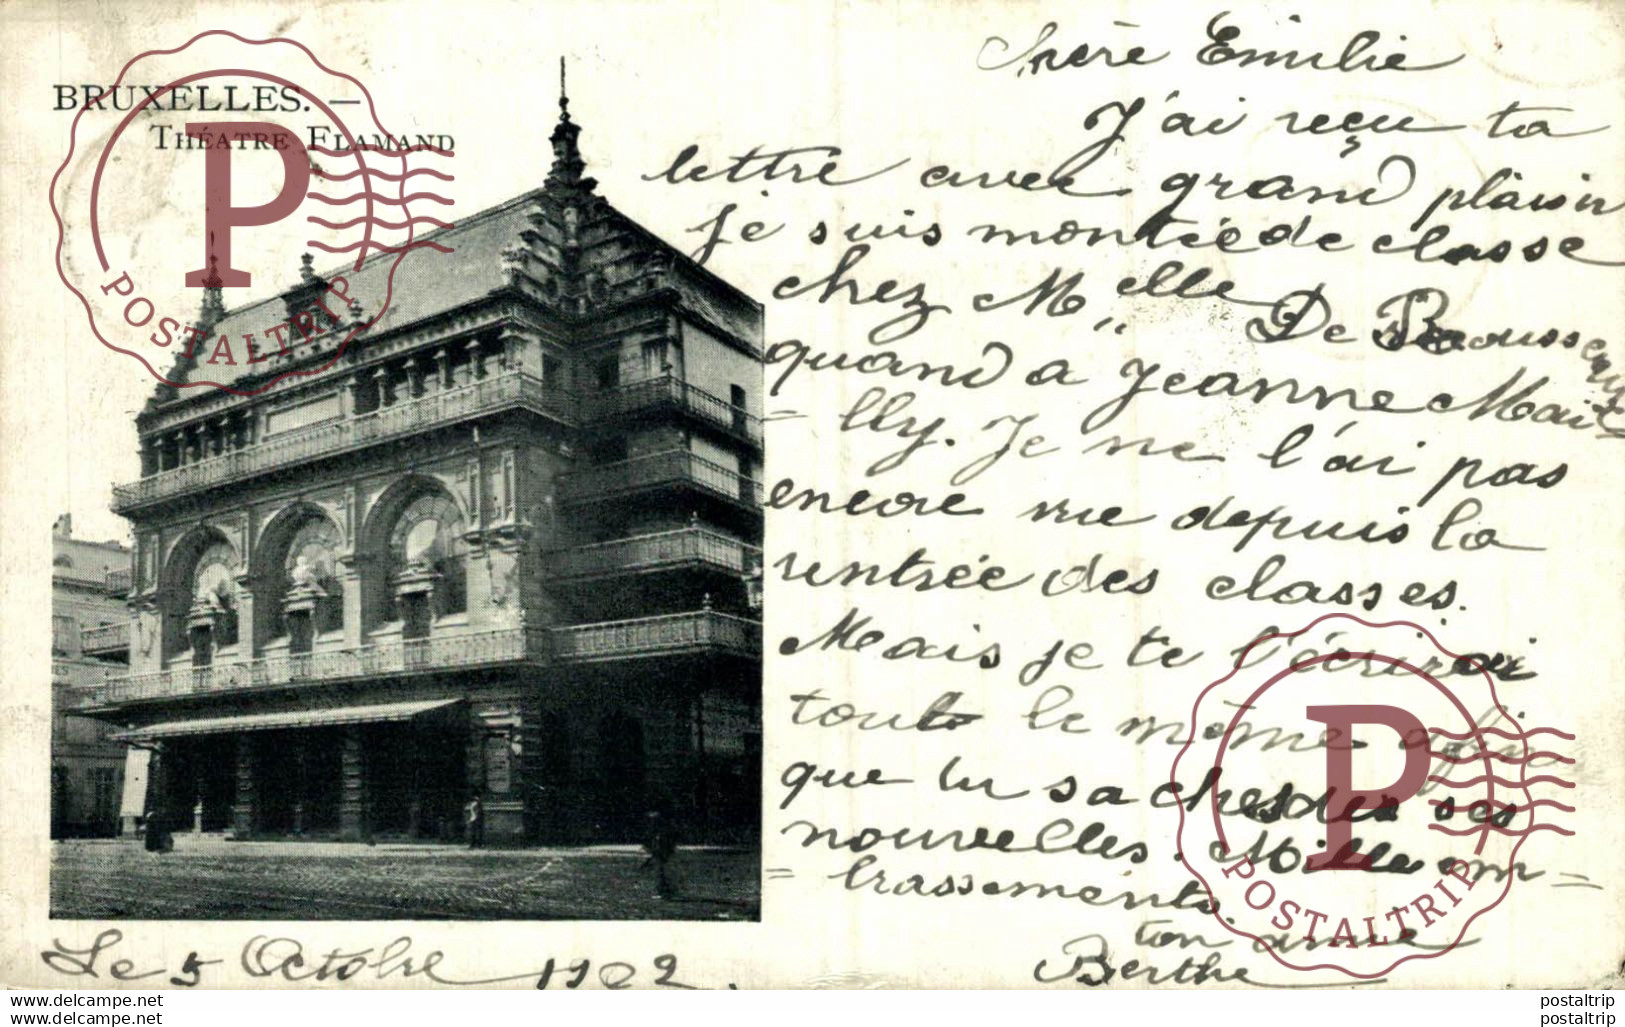 BRUXELLES. —
THÉATRE FLAMAND
Chère Emilie
J'ai reçu ta
lettre avec grand plaisir
je suis montée de classe
chez M,, elle De
quand a Jeanne Mail=
=lly. Je ne l'ai pas
encore vue depuis la
rentrée des classes.
Mais je te l'écrirai
tout le même afin
que tu saches de ses
nouvelles. Mille em=
=brassements.
ton amie
Berthe
Le 5 Octobre 1902.
P
POSTALTRIP
P
POSTALTRIP
www.delcampe.net
www.delcampe.net
postaltrip
postaltrip